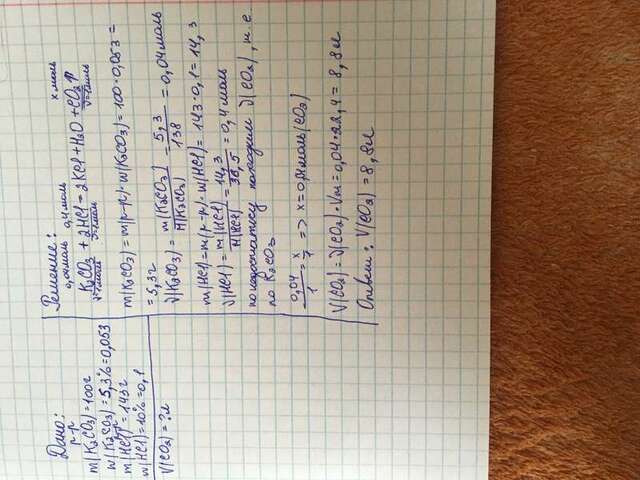 Дано:
р-р
m(K2CO3)=100г
w(K2CO3)=5,3%=0,053
m(HCl)=143г
w(HCl)=10%=0,1
V(CO2)=?л
Решение:
0,04моль 0,4моль x моль
K2CO3 + 2HCl = 2KCl + H2O + CO2↑
ν=1моль ν=1моль ν=1моль
m(K2CO3)=m(р-р)·w(K2CO3)=100·0,053=
=5,3г
ν(K2CO3)=m(K2CO3)/M(K2CO3)=5,3/138=0,04моль
m(HCl)=m(р-р)·w(HCl)=143·0,1=14,3
ν(HCl)=m(HCl)/M(HCl)=14,3/36,5=0,4моль
по недостатку находим ν(CO2), т.е
по K2CO3
0,04/1=x/1 => x=0,04моль(CO2)
V(CO2)=ν(CO2)·Vm=0,04·22,4=8,8л
Ответ: V(CO2)=8,8л